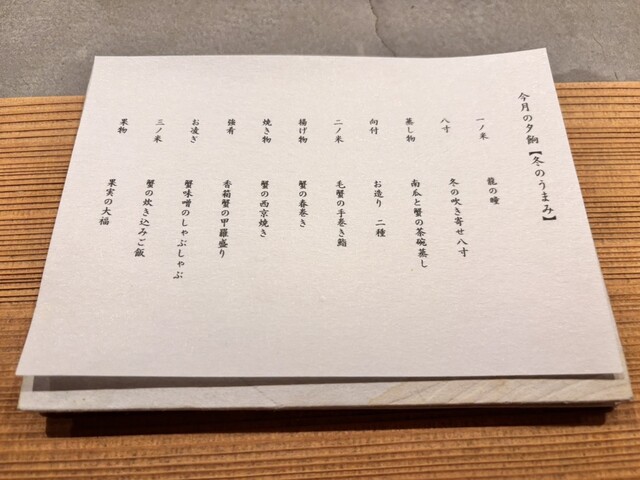 今月の夕餉【冬のうまみ】
一ノ米 龍の瞳
八寸 冬の吹き寄せ八寸
蒸し物 南瓜と蟹の茶碗蒸し
向付 お造り 二種
二ノ米 毛蟹の手巻き鮨
揚げ物 蟹の春巻き
焼き物 蟹の西京焼き
強肴 香箱蟹の甲羅盛り
お凌ぎ 蟹味噌のしゃぶしゃぶ
三ノ米 蟹の炊き込みご飯
果物 果実の大福